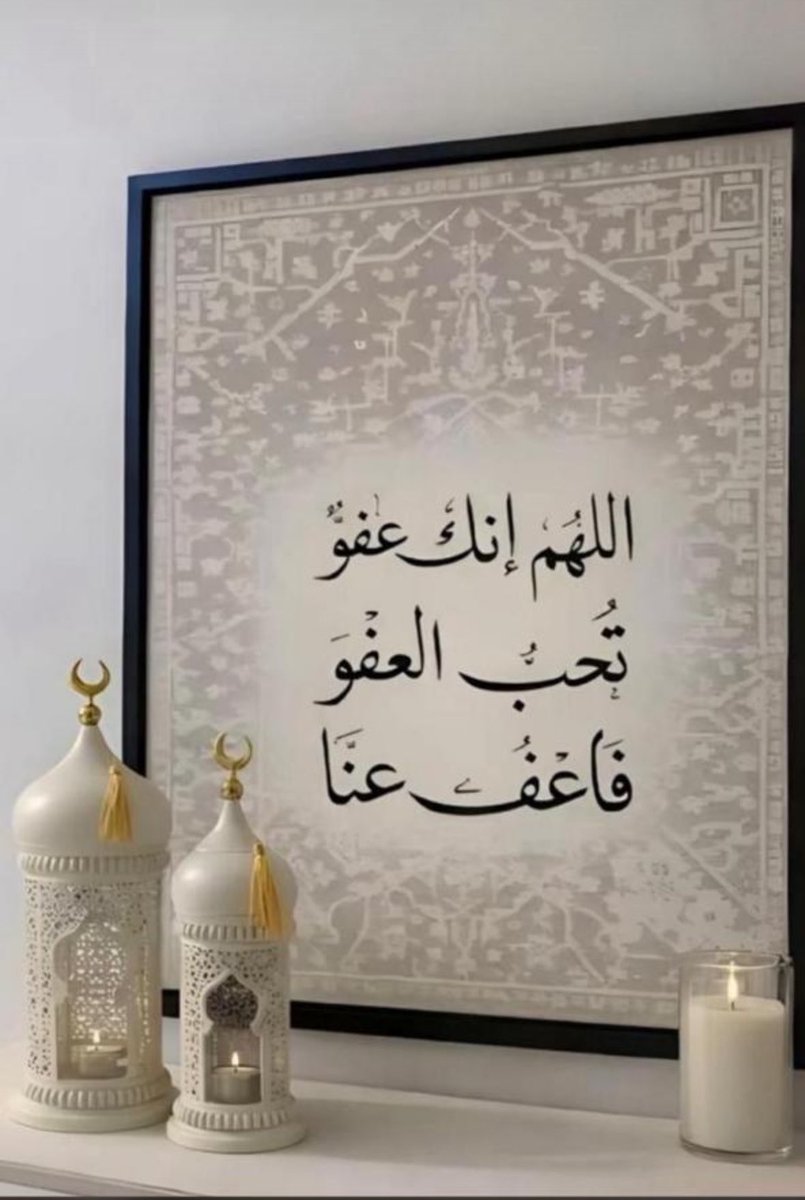 اللهُم إنكَ عفوٌّ
تُحبُّ العفْوَ
فَاعْفُ عنَّا